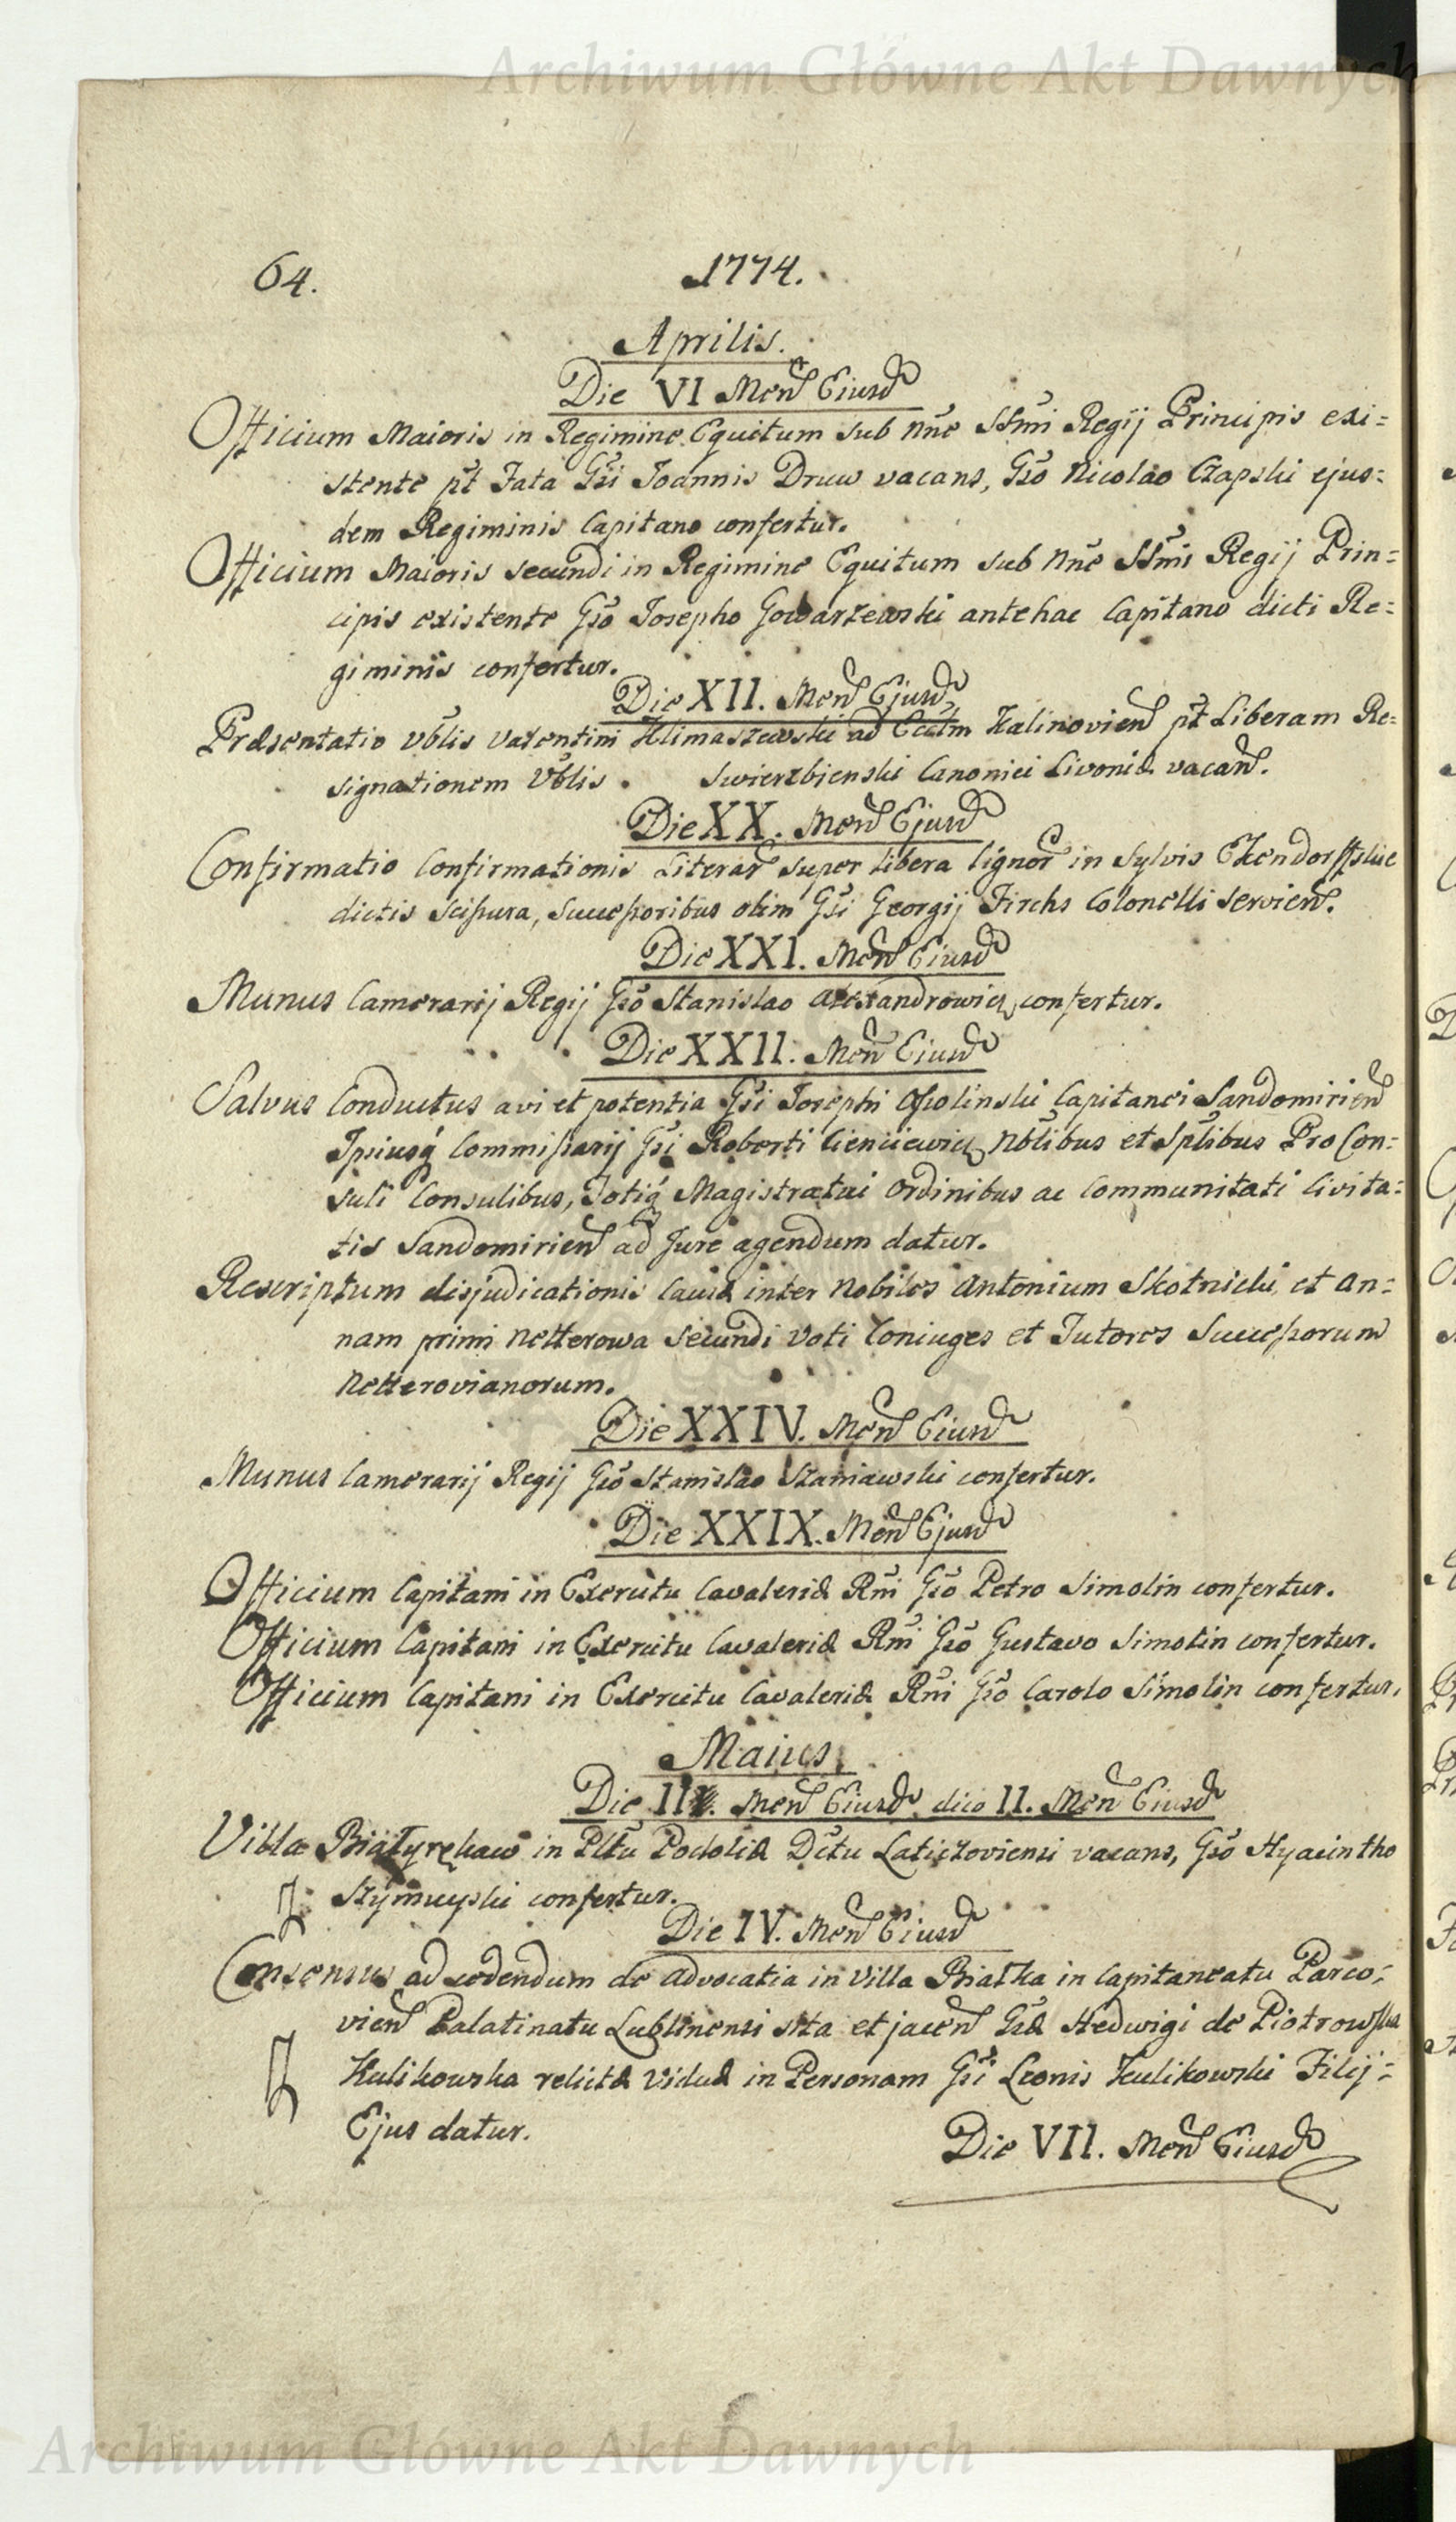 Archiwum Główne Akt Dawnych
64.
1774.
Aprilis.
Die VI Men Eiusd
Officium Maioris in Regimine Equitum sub nñe SSmi Regij Principis exi=
stente pt Fata Gsi Joannis Druw vacans, Gso Nicolao Czapski ejus=
dem Regiminis Capitano confertur.
Officium Maioris secundi in Regimine Equitum sub Nñe SSmi Regij Prin=
cipis existente Gso Josepho Gowarzewski antehac Capitano dicti Re=
giminis confertur.
Die XII. Men Ejusd
Præsentatio Vblis Valentini Klimaszewski ad Ecclm Kalinovien pt Liberam Re=
signationem Vblis . Swierzbienski Canonici Livoniæ vacan.
Die XX. Men Ejusd
Confirmatio Confirmationis Literar super libera lignor in Sylvis Ekendorffskie
dictis Scisura, Successoribus olim Gsi Georgij Firchs Colonelli servien.
Die XXI. Men Eiusd
Munus Camerarij Regij Gso Stanislao Alexandrowicz confertur.
Die XXII. Men Eiusd
Salvus Conductus a vi et potentia Gsi Josephi Ossolinski Capitanei Sandomirien
Ipsiusq Commissarij Gsi Roberti Cieniewicz Nobtlibus et Sptlibus Pro Con=
suli Consulibus, Totiq Magistratui Ordinibus ac Communitati Civita=
tis Sandomirien ad Jure agendum datur.
Rescriptum disjudicationis Causæ inter Nobiles Antonium Skotnicki et An=
nam primi Netterowa Secundi Voti Coniuges et Tutores Successorum
Netterovianorum.
Die XXIV. Men Eiusd
Munus Camerarij Regij Gso Stanislao Staniawski confertur.
Die XXIX. Men Ejusd
Officium Capitani in Exercitu Cavaleriæ Rni Gso Petro Simolin confertur.
Officium Capitani in Exercitu Cavaleriæ Rni Gso Gustavo Simolin confertur.
Officium Capitani in Exercitu Cavaleriæ Rni Gso Carolo Simolin confertur.
Maius
Die III. Men Eiusd dico II. Men Eiusd
Villa Białyrękaw in Pltu Podoliæ Dctu Laticzoviensi vacans, Gso Hyacintho
Szymuyski confertur.
Die IV. Men Eiusd
Consensus ad cedendum de Advocatia in Villa Białka in Capitaneatu Parco=
vien Palatinatu Lublinensi sita et jacen Gsæ Hedwigi de Piotrowska
Kulikowska relictæ Viduæ in Personam Gsi Leonis Kulikowski Filij=
Ejus datur.
Die VII. Men Eiusd
Archiwum Główne Akt Dawnych